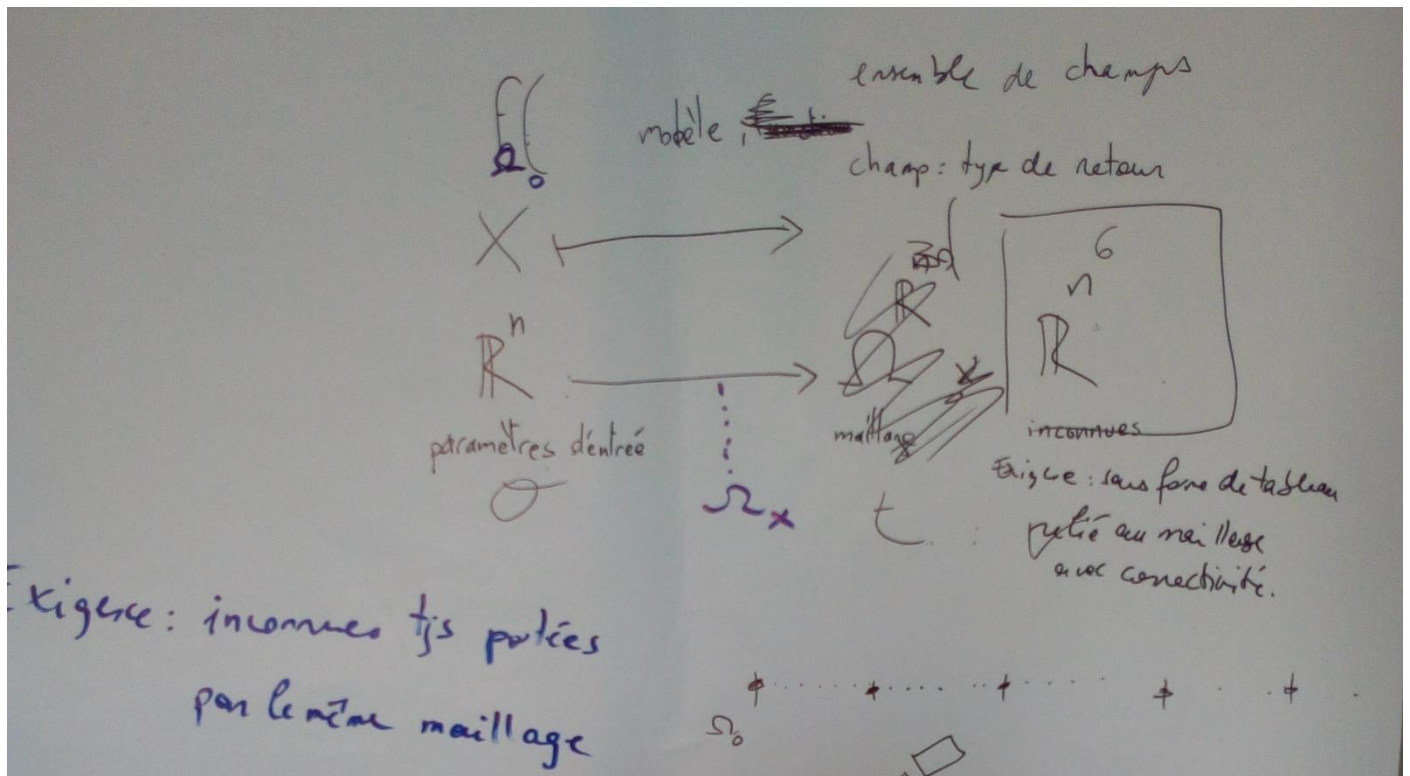 ensemble de champs
modèle,
champ: type de retour
f(
Ω₀
X ⟼
ℝⁿ ⟶
ℝ
d
Ω
x
ℝ^n^6
paramètres d'entrée
maillage
inconnues
Ωₓ
t
Exigence: sous forme de tableau
relié au maillage
avec connectivité.
Exigence: inconnues tjs portées
par le même maillage
Ω₀